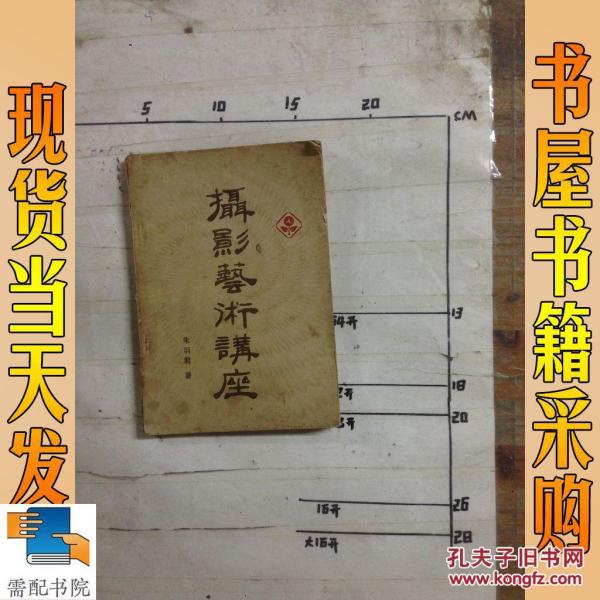 现货当天发
书屋书籍采购
5 10 15 20 CM
攝影藝術講座
朱羽君 著
13
64开
18
20
26
16开
28
大16开
需配书院
孔夫子旧书网
www.kongfz.com